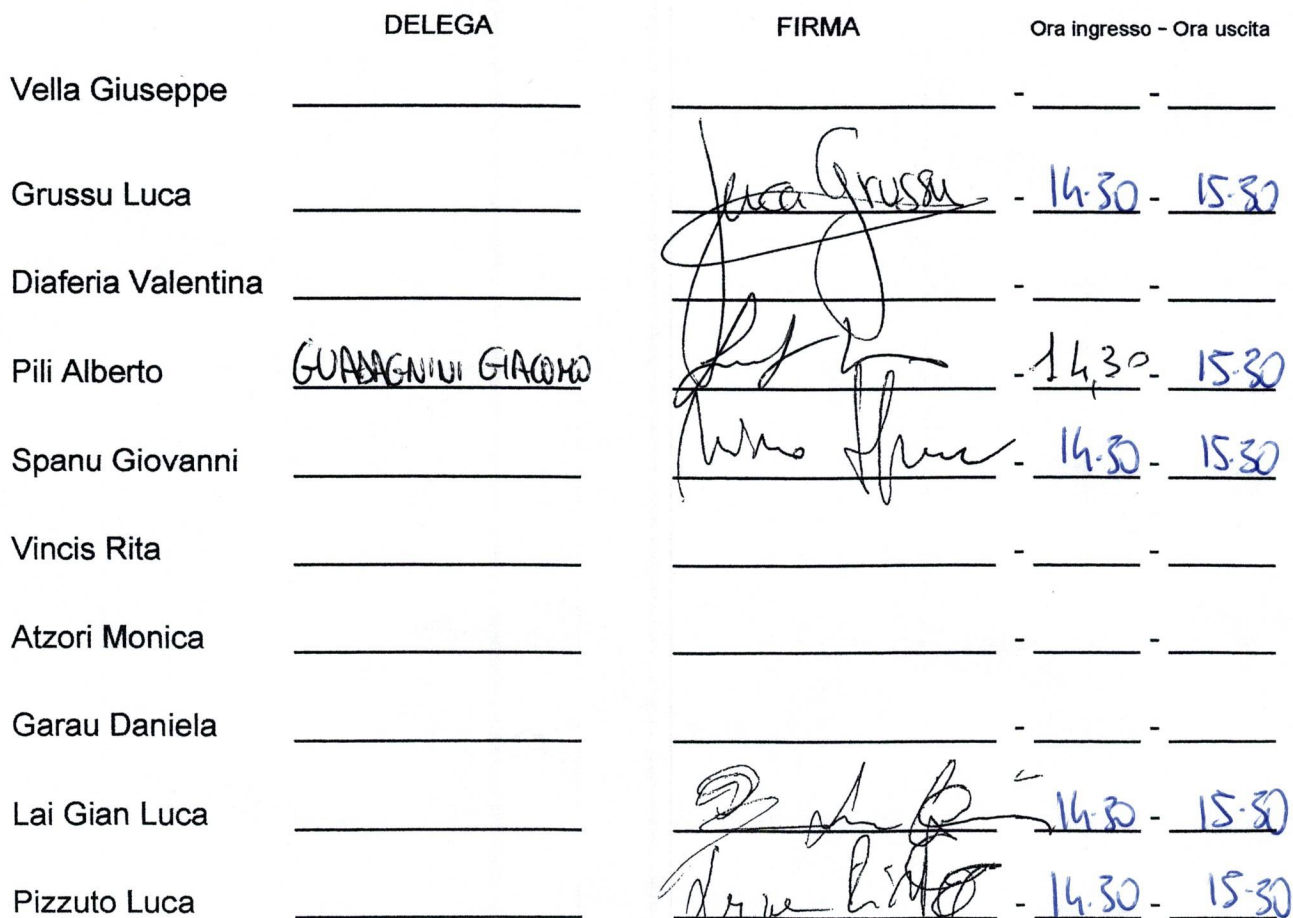 DELEGA FIRMA Ora ingresso - Ora uscita
Vella Giuseppe - -
Grussu Luca Luca Grussu - 14.30 - 15.30
Diaferia Valentina - -
Pili Alberto GUADAGNINI GIACOMO - 14,30 - 15.30
Spanu Giovanni - 14.30 - 15.30
Vincis Rita - -
Atzori Monica - -
Garau Daniela - -
Lai Gian Luca 14.30 - 15.30
Pizzuto Luca - 14.30 - 15.30